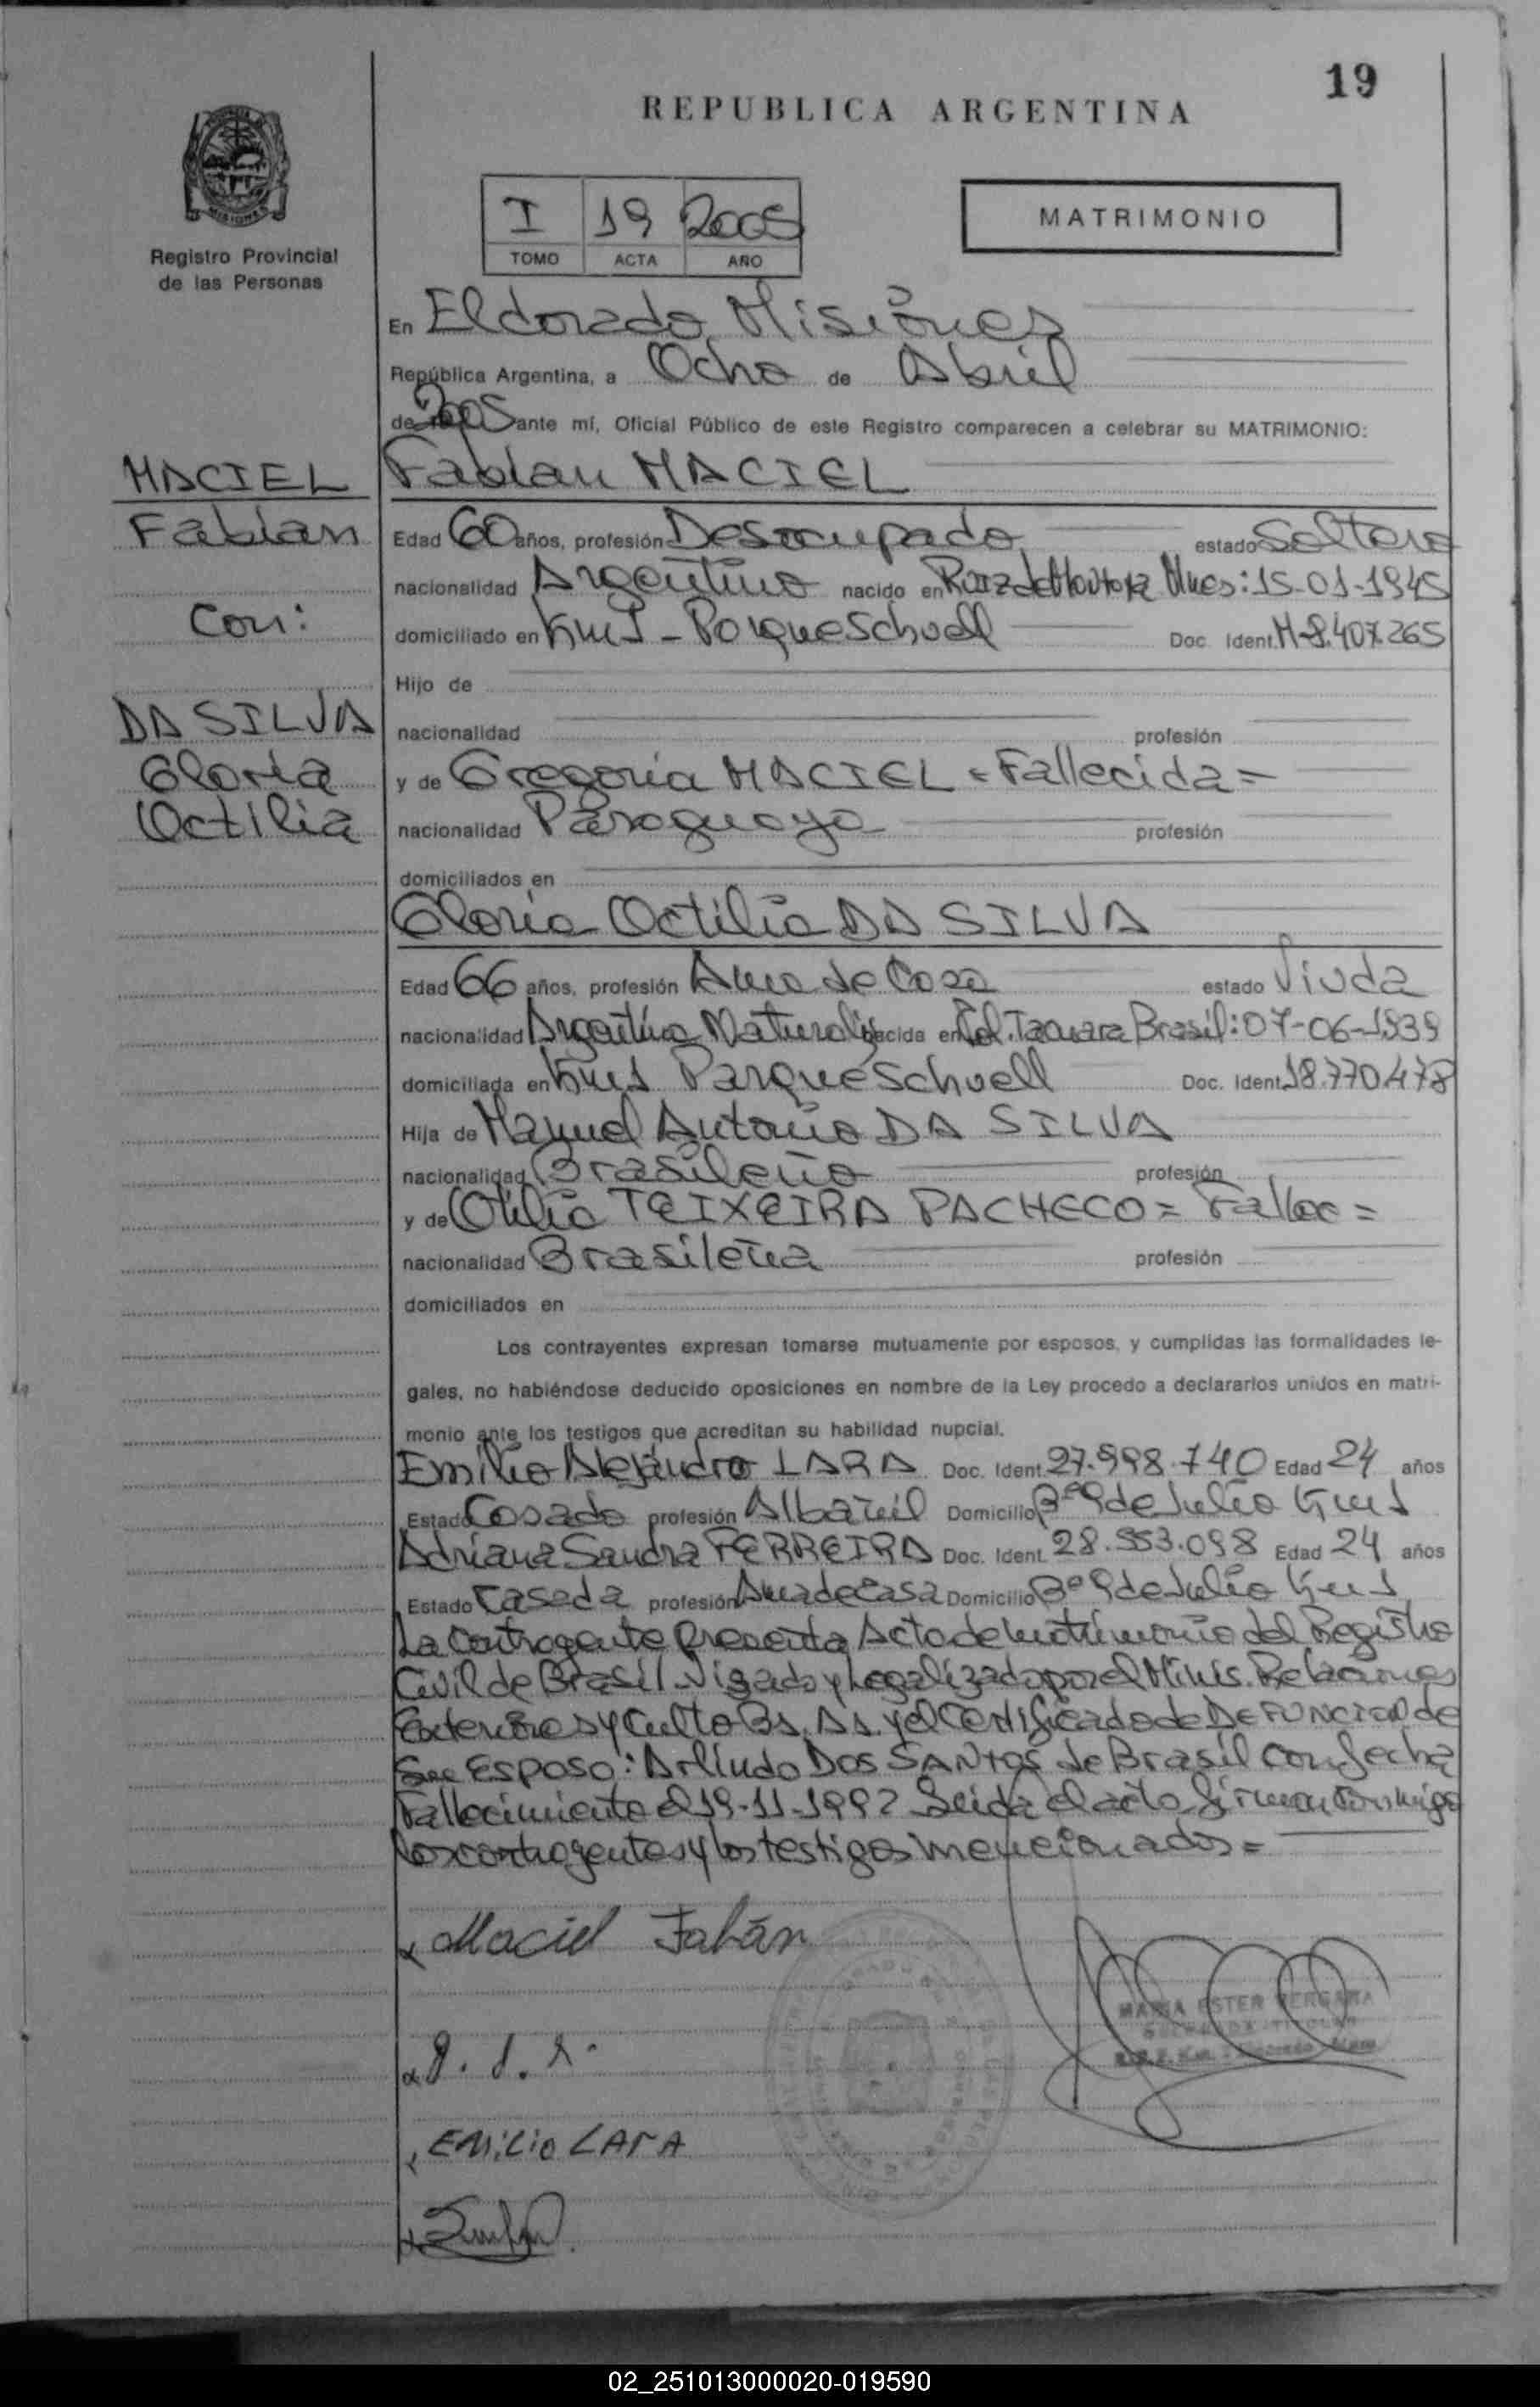 19
REPUBLICA ARGENTINA
I 19 2005
TOMO ACTA AÑO
MATRIMONIO
Registro Provincial
de las Personas
MACIEL
Fabian
Con:
DA SILVA
Gloria
Octilia
En Eldorado Misiones
República Argentina, a Ocho de Abril
de 2005 ante mí, Oficial Público de este Registro comparecen a celebrar su MATRIMONIO:
Fabian MACIEL
Edad 60 años, profesión Desocupado estado Soltero
nacionalidad Argentino nacido en Ruiz de Montoya Mnes: 15-01-1945
domiciliado en Km 1 - Parque Schwell Doc. Ident. M-8.407.265
Hijo de
nacionalidad profesión
y de Gregoria MACIEL = Fallecida =
nacionalidad Paraguaya profesión
domiciliados en
Gloria Octilia DA SILVA
Edad 66 años, profesión Ama de Casa estado Viuda
nacionalidad Argentina Naturaliz nacida en Col. Tacuara Brasil: 07-06-1939
domiciliada en Km 1 Parque Schwell Doc. Ident. 18.770.478
Hija de Manuel Antonio DA SILVA
nacionalidad Brasileño profesión
y de Otilia TEIXEIRA PACHECO = Fallec =
nacionalidad Brasileña profesión
domiciliados en
Los contrayentes expresan tomarse mutuamente por esposos, y cumplidas las formalidades le-
gales, no habiéndose deducido oposiciones en nombre de la Ley procedo a declararlos unidos en matri-
monio ante los testigos que acreditan su habilidad nupcial.
Emilio Alejandro LARA Doc. Ident. 27.998.740 Edad 24 años
Estado Casado profesión Albañil Domicilio Bº 9 de Julio Km 1
Adriana Sandra FERREIRA Doc. Ident. 28.553.098 Edad 24 años
Estado Casada profesión Ama de Casa Domicilio Bº 9 de Julio Km 1
La Contrayente Presenta Acta de Matrimonio del Registro
Civil de Brasil Visado y Legalizado por el Minis. Relaciones
Exteriores y Culto Bs. As. y el Certificado de DEFUNCION de
su Esposo: Arlindo DOS SANTOS de Brasil con fecha
Fallecimiento el 19-11-1992 Leida el acta firman conmigo
los contrayentes y los testigos mencionados =
Maciel Fabián
Emilio LARA
MARIA ESTER VERGARA
02_251013000020-019590